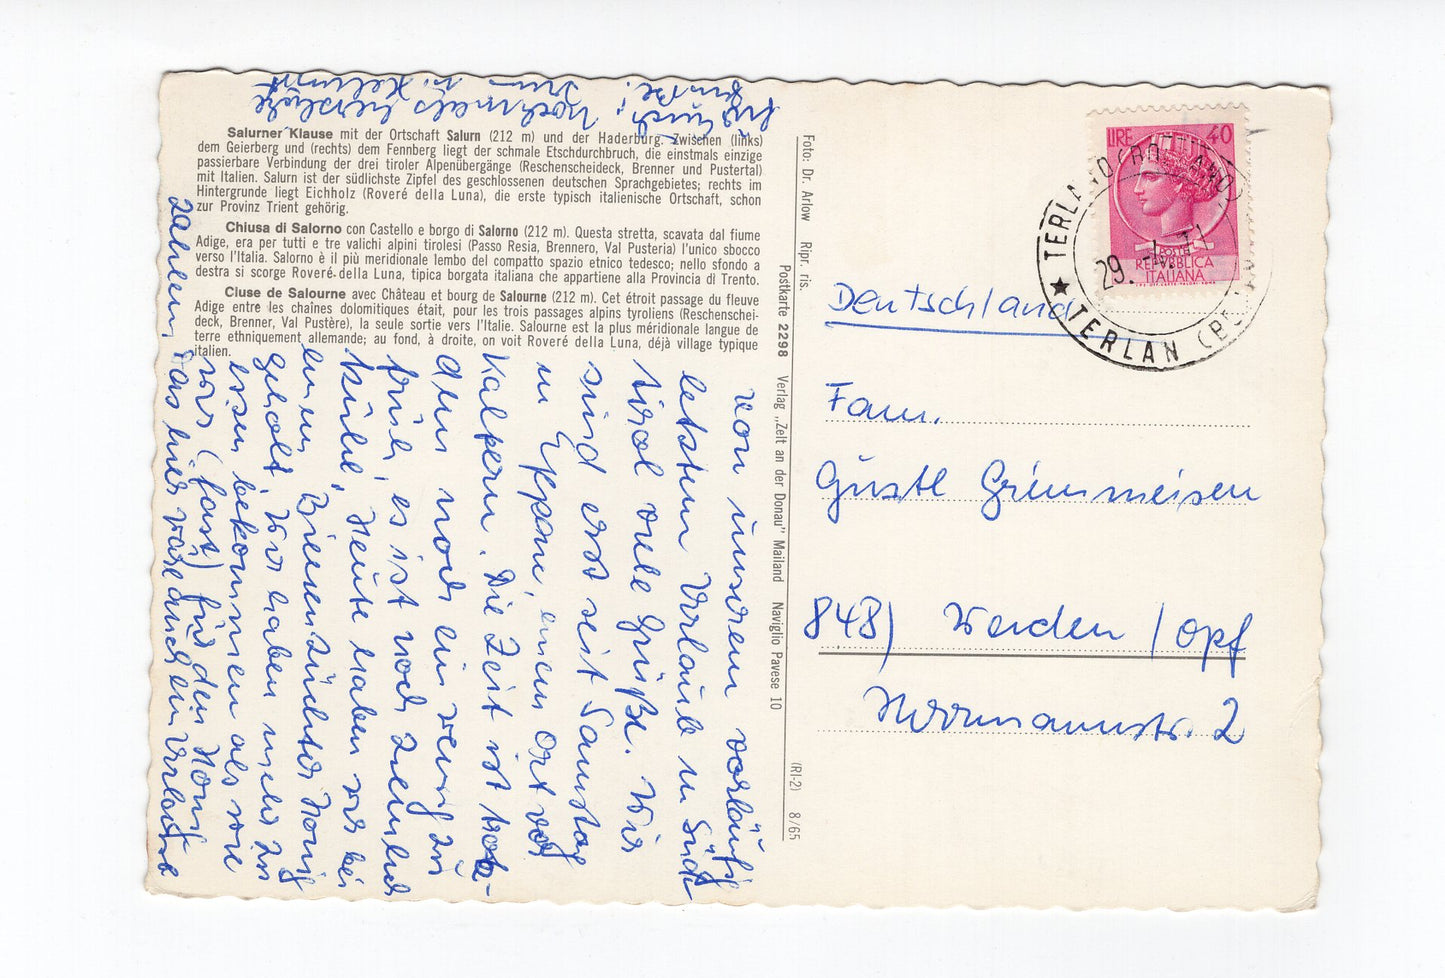 Salurner Klause mit der Ortschaft Salurn (212 m) und der Haderburg. Zwischen (links)
dem Geierberg und (rechts) dem Fennberg liegt der schmale Etschdurchbruch, die einstmals einzige
passierbare Verbindung der drei tiroler Alpenübergänge (Reschenscheideck, Brenner und Pustertal)
mit Italien. Salurn ist der südlichste Zipfel des geschlossenen deutschen Sprachgebietes; rechts im
Hintergrunde liegt Eichholz (Roveré della Luna), die erste typisch italienische Ortschaft, schon
zur Provinz Trient gehörig.
Chiusa di Salorno con Castello e borgo di Salorno (212 m). Questa stretta, scavata dal fiume
Adige, era per tutti e tre valichi alpini tirolesi (Passo Resia, Brennero, Val Pusteria) l'unico sbocco
verso l'Italia. Salorno è il più meridionale lembo del compatto spazio etnico tedesco; nello sfondo a
destra si scorge Roveré della Luna, tipica borgata italiana che appartiene alla Provincia di Trento.
Cluse de Salourne avec Château et bourg de Salourne (212 m). Cet étroit passage du fleuve
Adige entre les chaînes dolomitiques était, pour les trois passages alpins tyroliens (Reschenschei-
deck, Brenner, Val Pustère), la seule sortie vers l'Italie. Salourne est la plus méridionale langue de
terre ethniquement allemande; au fond, à droite, on voit Roveré della Luna, déjà village typique
italien.
von unserem vorläufig
letzten Urlaub in Süd-
tirol viele Grüße. Wir
sind erst seit Samstag
in Eppan, einem Ort vor
Kaltern. Die Zeit ist trotz-
dem noch ein wenig zu
früh, es ist noch ziemlich
kühl. Heute haben wir bei
einem Bienenzüchter Honig
geholt. Wir haben mehr zu
essen bekommen als wie
wir (fast) für den Honig
zahlen, das hier wäre auch ein Urlaub
für Euch;
nochmals herzliche
Grüße
u. Helmut
Foto: Dr. Arlow Ripr. ris.
Postkarte 2298 Verlag „Zelt an der Donau" Mailand Naviglio Pavese 10
(RI-2) 8/65
LIRE 40
POSTE
REPVBBLICA
ITALIANA
TERLANO (BOLZANO)
29. 4. 71
TERLAN
Deutschland
Fam.
Gustl Grünmeisen
848) Weiden / Opf
Herrmannstr. 2